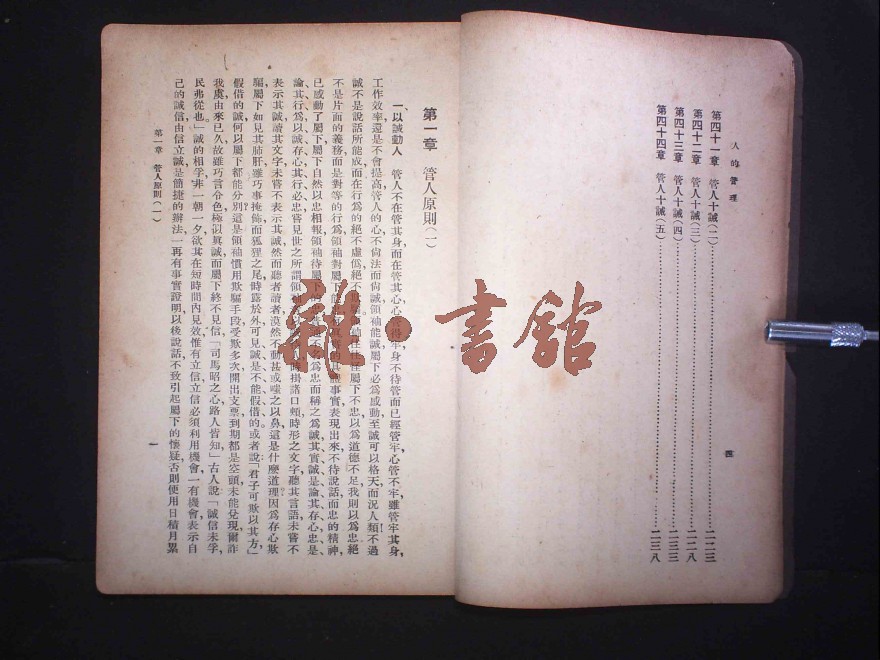 人的管理
第四十一章 管人十誡(二)……一二三
第四十二章 管人十誡(三)……一二八
第四十三章 管人十誡(四)……一三三
第四十四章 管人十誡(五)……一三八
四
第一章 管人原則(一)
一、以誠動人 管人不在管其身,而在管其心,心管得牢,身不待管而已經管牢,心管不牢,雖管牢其身,
工作效率還是不會提高,管人的心,不尙法而尙誠,領袖能誠,屬下必爲感動,至誠可以格天,而況人類!不過
誠不是說話所能成,而在行爲的絕不虛僞,絕不欺
屬下不忠,以爲道德不足,我則以爲忠絕
不是片面的義務,而是對等的行爲,領袖對屬下
事實表現出來,不待說話,而忠的精神,
已感動了屬下,屬下自然以忠相報,領袖待屬下
名爲忠而稱之爲誠,其實誠是論其存心,忠是
論其行爲,以誠存心,其行必忠,嘗見世之所謂領袖
時掛諸口頰,時形之文字,聽其言語,未嘗不
表示其誠,讀其文字,未嘗不表示其誠,然而聽者讀者,漠然不動,甚或嗤之以鼻,這是什麼道理?因爲存心欺
騙,屬下如見其肺肝,雖巧事掩飾,而狐狸之尾,時露於外,可見誠是不能假借的。或者說:「君子可欺以其方,」
假借的誠,何以屬下都能分別?這是領袖慣用欺騙手段,受欺多次,開出支票,到期都是空頭,未能兌現,爾詐
我虞,由來已久,故雖巧言令色,極似眞誠,而屬下終不見信,「司馬昭之心,路人皆知」古人說:「誠信未孚,
民弗從也。」誠的相孚,非一朝一夕,欲其在短時間內見效,惟有立信,立信必須利用機會,一有機會,表示自
己的誠信,由信立誠,是簡捷的辦法,一再有事實證明,以後說話,不致引起屬下的懷疑,否則便用日積月累
第一章 管人原則(一)
一
雜·書館